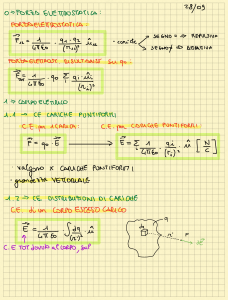 28/09
0 → FORZA ELETTROSTATICA:
FORZA ELETTROSTATICA:
F₁₂ = 1/4πε₀ · q₁·q₂/(r₁₂)² · û₁₂
SEGNO = → REPULSIVA
SEGNO ≠ → ATTRATTIVA
FORZA ELETTROSTATICA RISULTANTE SU q₀:
= 1/4πε₀ · q₀ Σ qᵢ·ûᵢ/(rᵢ)²
1 → CAMPO ELETTRICO
1.1 → CE CARICHE PUNTIFORMI
C.E. per 1 CARICA: C.E. per CARICHE PUNTIFORMI:
F = q₀·E → E = 1/4πε₀ · Σ qᵢ/(rᵢ)² · ûᵢ [N/C]
valgono x CARICHE PUNTIFORMI
grandezza VETTORIALE
1.2 → CE DISTRIBUZIONI DI CARICHE
C.E. di un CORPO ESTESO CARICO
E = 1/4πε₀ ∫ dq/(r)² · û
dq
C.E TOT dovuto al CORPO